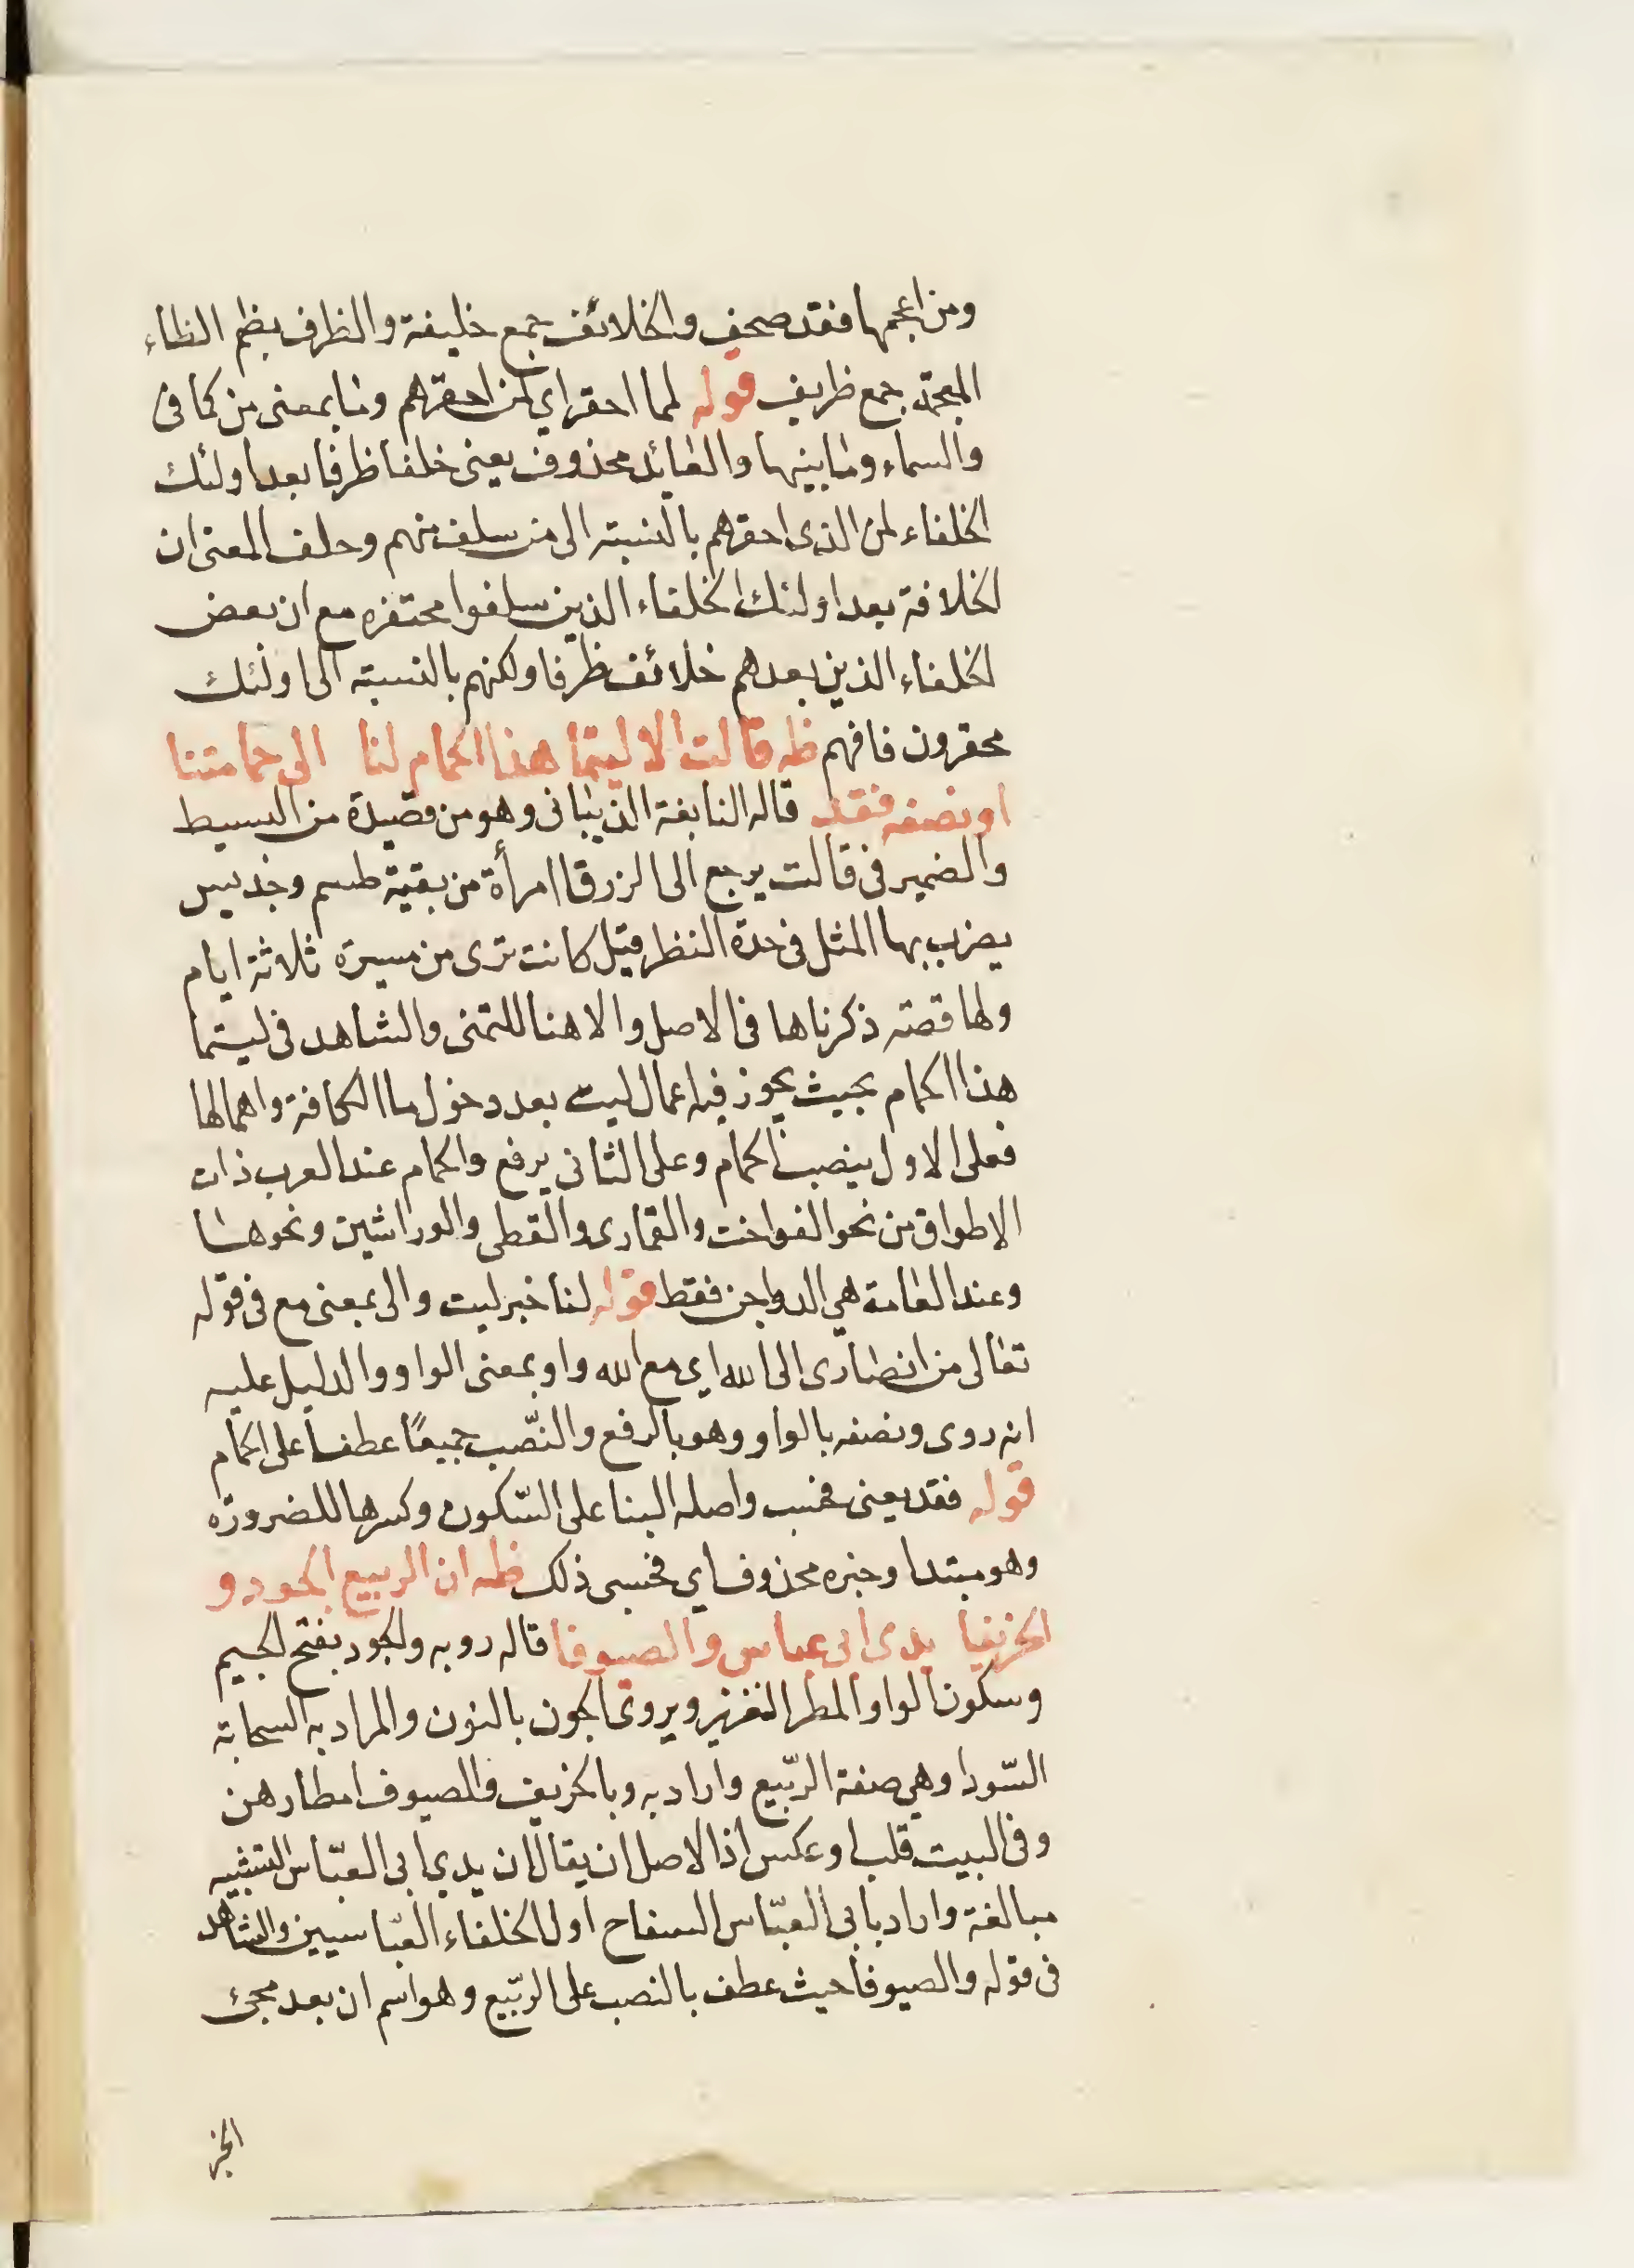 ومن اعجمها فقد صحف والخلائف جمع خليفة والظرف بظم الظاء
المعجمة جمع ظريف قوله لما احقر اي لمن احقرهم وما بمعنى من كما فى
والسماء وما بينها والعائد محذوف يعنى خلفا ظرفا بعد اولئك
الخلفاء لمن الذى احقرهم بالنسبته الى من سلف منهم وحلف المعنى ان
الخلافة بعد اولئك الخلفاء الذين سلفوا محتقره مع ان بعض
الخلفاء الذين بعدهم خلائف ظرفا ولكنهم بالنسبته الى اولئك
محقرون فافهم ظه قالت الا ليتما هذا الحمام لنا الى حمامتنا
او نصفه فقد قاله النابغة الذبيانى وهو من قصيدة من البسيط
والضمير فى قالت يرجع الى الزرقا امرأة من بقية طسم وجديس
يضرب بها المثل فى حدة النظر قيل كانت ترى من مسيرة ثلاثة ايام
ولها قصته ذكرناها فى الاصل والا هنا للتمنى والشاهد فى ليتما
هذا الحمام بحيث يجوز فيه اعمال ليت بعد دخول ما الكافة واهمالها
فعلى الاول ينصب الحمام وعلى الثانى يرفع والحمام عند العرب ذات
الاطواق من نحو الفواخت والقمارى والقطى والوراشين ونحوها
وعند العامة هي الدواجن فقط قوله لنا خبر ليت والى بمعنى مع فى قوله
تعالى من انصارى الى الله اي مع الله واو بمعنى الواو والدليل عليه
انه روى ونصفه بالواو وهو بالرفع والنّصب جميعًا عطفا على الحمام
قوله فقد يعنى فحسب واصله البنا على السّكون وكسرها للضرورة
وهو مبتدا وخبره محذوف اي فحسبى ذلك ظه ان الربيع الجود و
الخريفا يدى ابى عباس والصيوفا قاله روبه والجود بفتح الجيم
وسكون الواو المطر الغزير ويروى الجون بالنون والمراد به السحابة
السّودا وهي صفة الرّبيع واراد به وبالخريف والصيوف امطارهن
وفى البيت قلب وعكس اذ الاصل ان يقال ان يدي ابى العبّاس التشبيه
مبالغة واراد بابى العبّاس السفاح اول الخلفاء العبّاسيين والشاهد
فى قوله والصيوفا حيث عطف بالنصب على الرّبيع وهو اسم ان بعد مجئ
الخبر